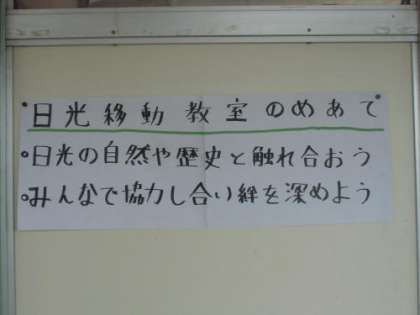 日光移動教室のめあて
○日光の自然や歴史と触れ合おう
○みんなで協力し合い絆を深めよう